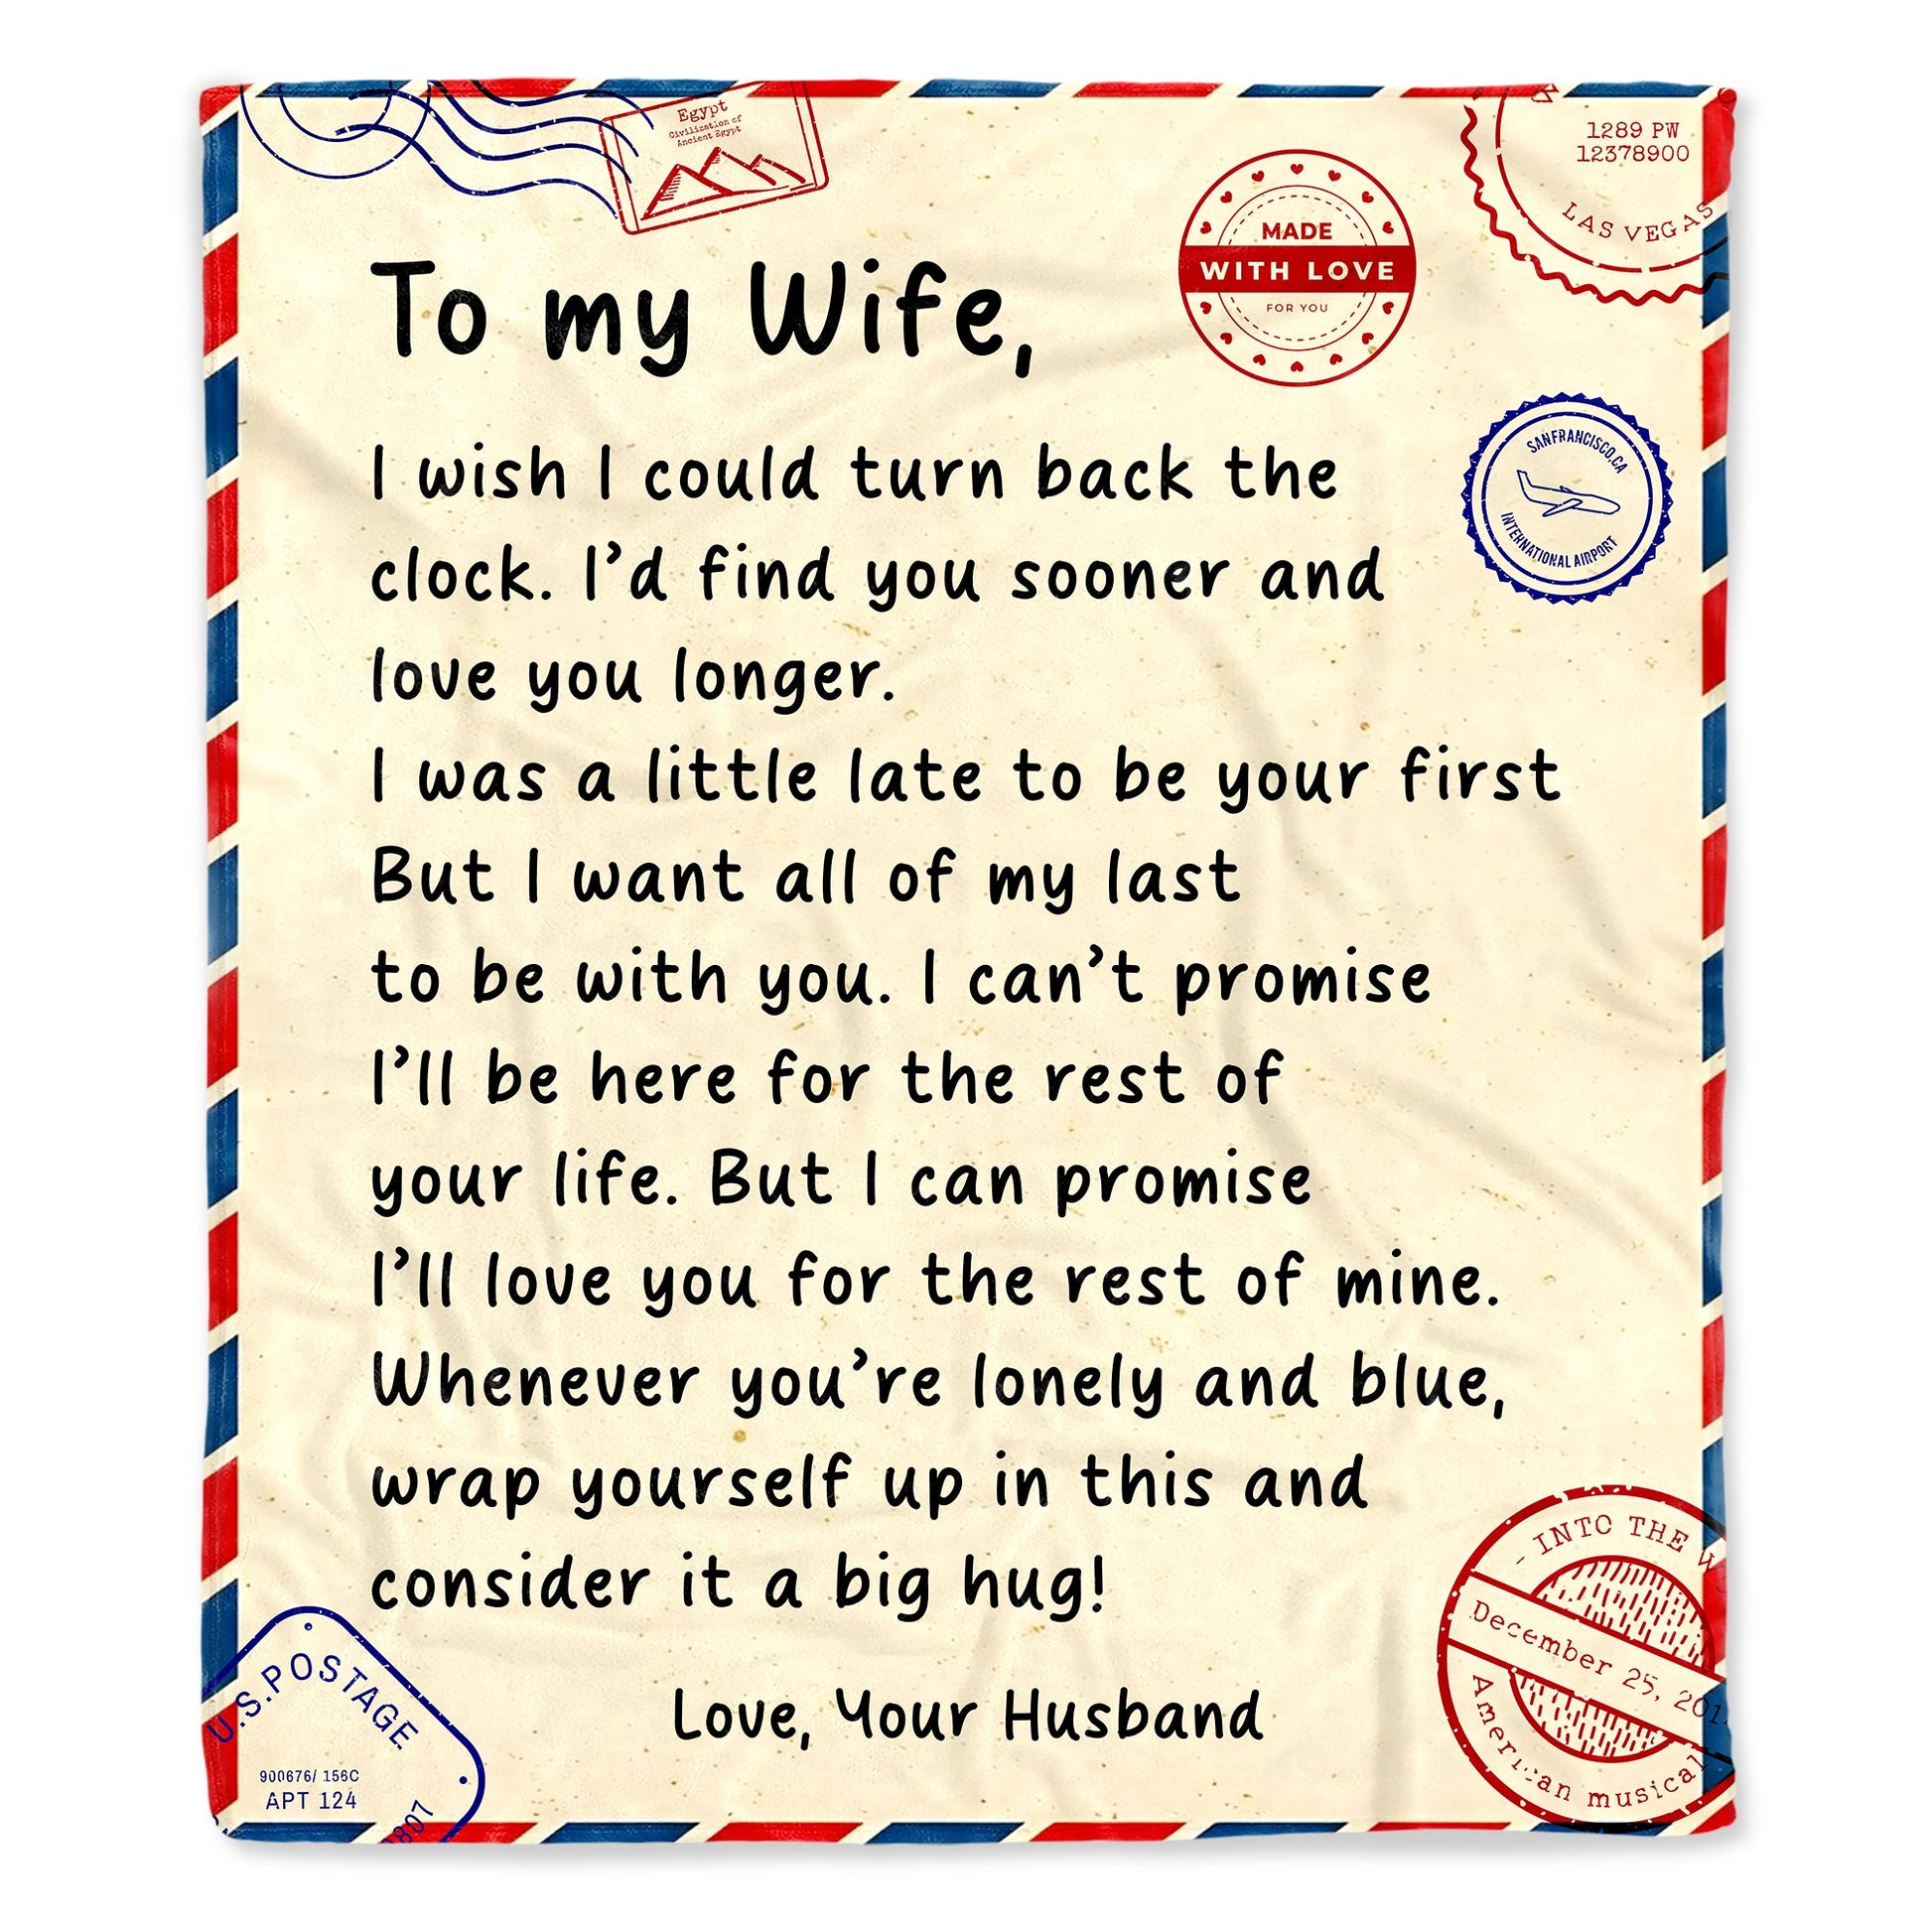 Egypt
Civilization of
Ancient Egypt
1289 PW
12378900
LAS VEGAS
MADE
WITH LOVE
FOR YOU
To my Wife,
SANFRANCISCO,CA
INTERNATIONAL AIRPORT
I wish I could turn back the
clock. I’d find you sooner and
love you longer.
I was a little late to be your first
But I want all of my last
to be with you. I can’t promise
I’ll be here for the rest of
your life. But I can promise
I’ll love you for the rest of mine.
Whenever you’re lonely and blue,
wrap yourself up in this and
consider it a big hug!
Love, Your Husband
- INTO THE
December 25, 201
American musical
U.S.POSTAGE
900676/ 156C
APT 124